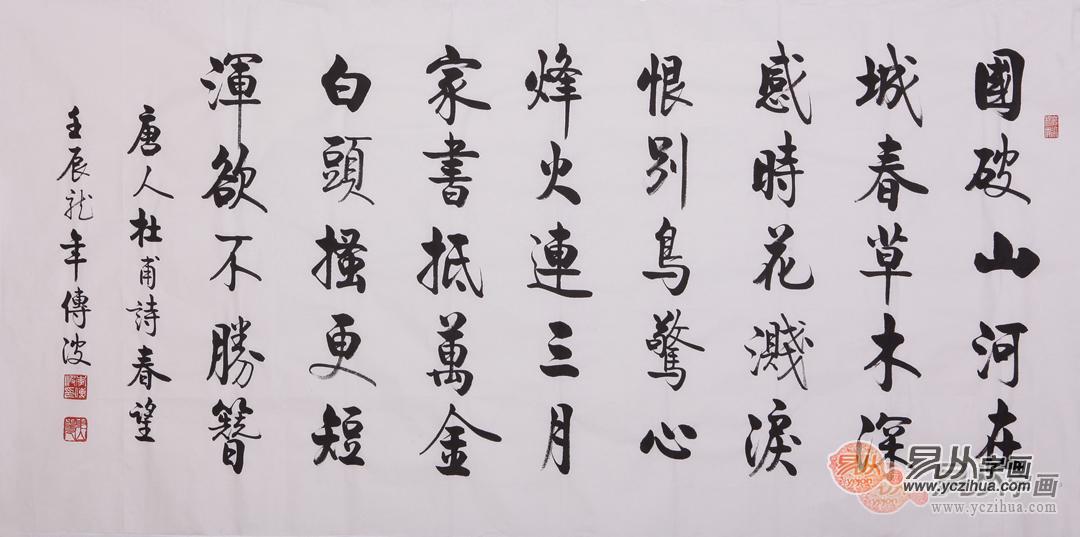 國破山河在
城春草木深
感時花濺淚
恨別鳥驚心
烽火連三月
家書抵萬金
白頭搔更短
渾欲不勝簪
唐人杜甫詩春望
壬辰龍年傳波
易从字画
www.yczihua.com
www.yczihua.com